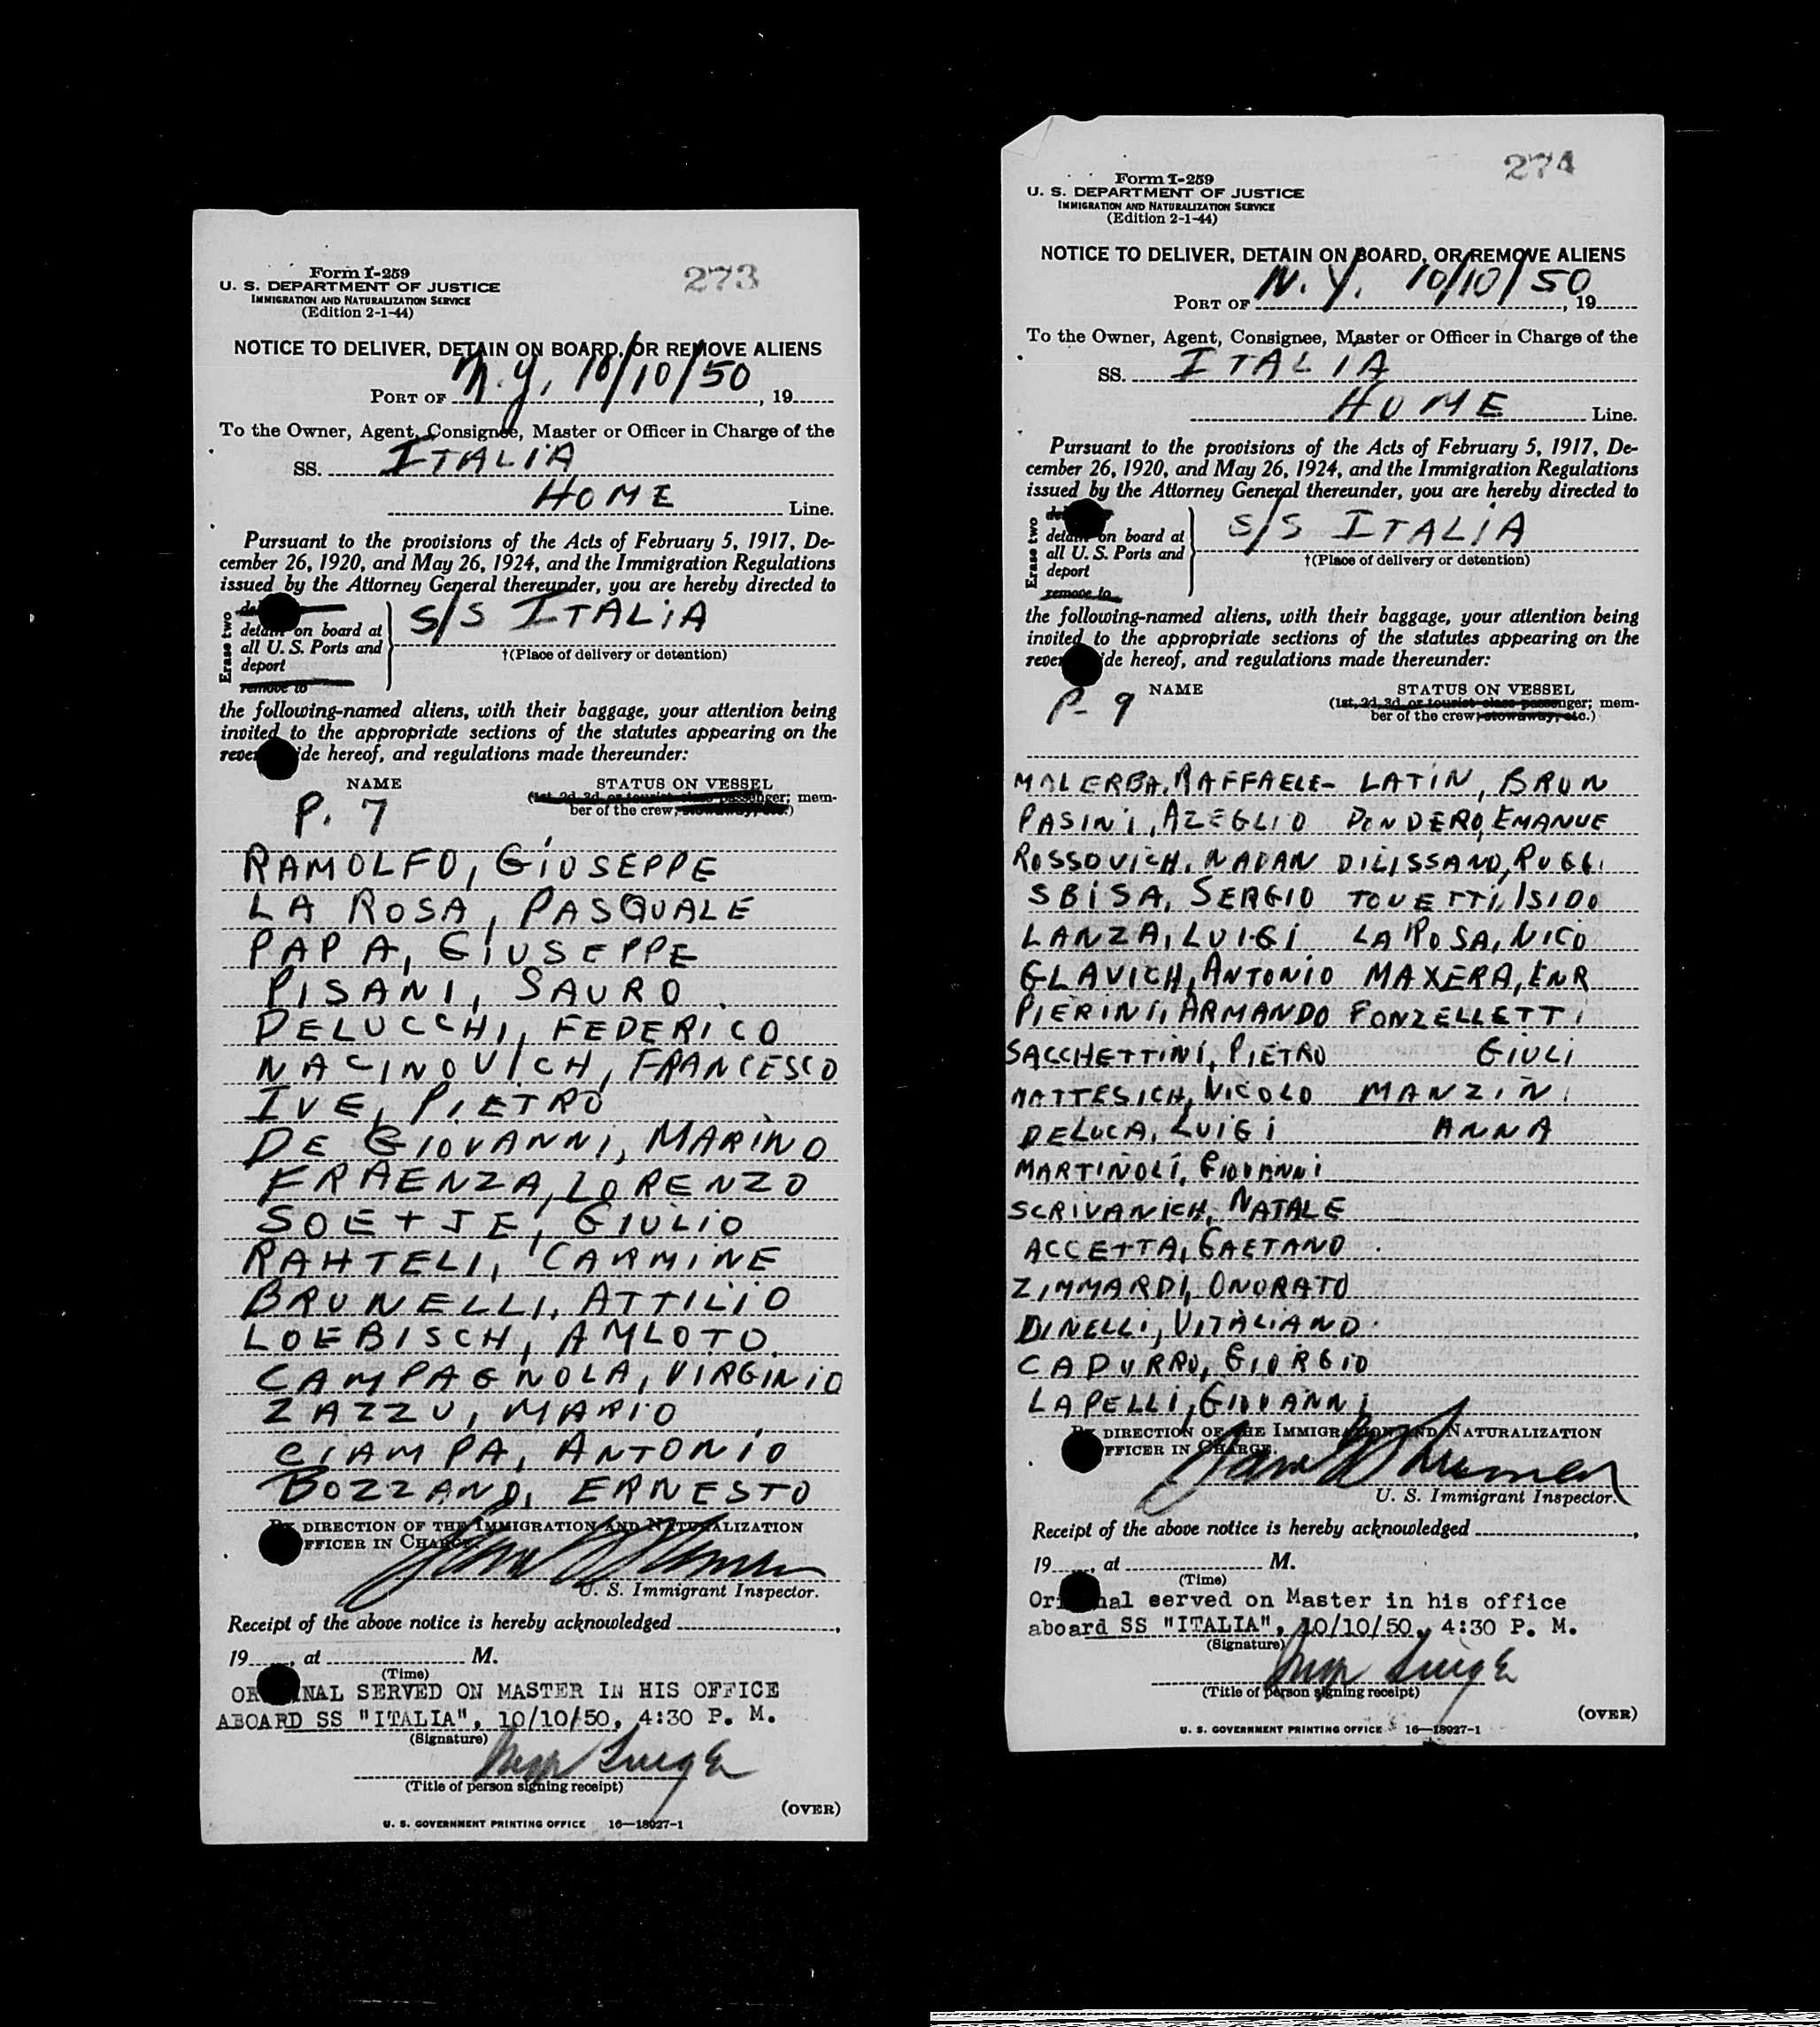 273
Form I-259
U. S. DEPARTMENT OF JUSTICE
IMMIGRATION AND NATURALIZATION SERVICE
(Edition 2-1-44)
NOTICE TO DELIVER, DETAIN ON BOARD, OR REMOVE ALIENS
PORT OF N.Y. 10/10/50, 19
To the Owner, Agent, Consignee, Master or Officer in Charge of the
SS. ITALIA
HOME Line.
Pursuant to the provisions of the Acts of February 5, 1917, De-
cember 26, 1920, and May 26, 1924, and the Immigration Regulations
issued by the Attorney General thereunder, you are hereby directed to
Erase two
detain on board at
all U. S. Ports and
deport
remove to
S/S ITALIA
†(Place of delivery or detention)
the following-named aliens, with their baggage, your attention being
invited to the appropriate sections of the statutes appearing on the
hereof, and regulations made thereunder:
NAME STATUS ON VESSEL
(1st, 2d, 3d, or tourist class passenger; mem-
ber of the crew; stowaway, etc.)
P. 7
RAMOLFO, GIUSEPPE
LA ROSA, PASQUALE
PAPA, GIUSEPPE
PISANI, SAURO
DELUCCHI, FEDERICO
NACINOVICH, FRANCESCO
IVE, PIETRO
DE GIOVANNI, MARINO
FRAENZA, LORENZO
SOETJE, GIULIO
RAHTELI, CARMINE
BRUNELLI, ATTILIO
LOEBISCH, AMLOTO
CAMPAGNOLA, VIRGINIO
ZAZZU, MARIO
CIAMPA, ANTONIO
BOZZANO, ERNESTO
DIRECTION OF THE IMMIGRATION AND NATURALIZATION
OFFICER IN CHARGE.
U. S. Immigrant Inspector.
Receipt of the above notice is hereby acknowledged
19, at M.
(Time)
ORIGINAL SERVED ON MASTER IN HIS OFFICE
ABOARD SS "ITALIA", 10/10/50, 4:30 P. M.
(Signature)
(Title of person signing receipt)
(OVER)
U. S. GOVERNMENT PRINTING OFFICE 16—18027-1
274
Form I-259
U. S. DEPARTMENT OF JUSTICE
IMMIGRATION AND NATURALIZATION SERVICE
(Edition 2-1-44)
NOTICE TO DELIVER, DETAIN ON BOARD, OR REMOVE ALIENS
PORT OF N.Y. 10/10/50, 19
To the Owner, Agent, Consignee, Master or Officer in Charge of the
SS. ITALIA
HOME Line.
Pursuant to the provisions of the Acts of February 5, 1917, De-
cember 26, 1920, and May 26, 1924, and the Immigration Regulations
issued by the Attorney General thereunder, you are hereby directed to
Erase two
detain on board at
all U. S. Ports and
deport
remove to
S/S ITALIA
†(Place of delivery or detention)
the following-named aliens, with their baggage, your attention being
invited to the appropriate sections of the statutes appearing on the
hereof, and regulations made thereunder:
NAME STATUS ON VESSEL
(1st, 2d, 3d, or tourist class passenger; mem-
ber of the crew; stowaway, etc.)
P- 9
MALERBA, RAFFAELE- LATIN, BRUN
PASINI, AZEGLIO PONDERO, EMANUE
ROSSOVICH, NADAN DILISSANO, RUGGI
SBISA, SERGIO TOVETTI, ISIDO
LANZA, LUIGI LA ROSA, NICO
GLAVICH, ANTONIO MAXERA, ENR
PIERINI, ARMANDO FONZELLETTI
SACCHETTINI, PIETRO GIULI
MATTESICH, NICOLO MANZINI
DELUCA, LUIGI ANNA
MARTINOLI, GIOVANNI
SCRIVANICH, NATALE
ACCETTA, GAETANO
ZIMMARDI, ONORATO
DINELLI, VITALIANO
CADURRO, GIORGIO
LAPELLI, GIOVANNI
DIRECTION OF THE IMMIGRATION AND NATURALIZATION
OFFICER IN CHARGE.
U. S. Immigrant Inspector.
Receipt of the above notice is hereby acknowledged
19, at M.
(Time)
Original served on Master in his office
aboard SS "ITALIA", 10/10/50, 4:30 P. M.
(Signature)
(Title of person signing receipt)
(OVER)
U. S. GOVERNMENT PRINTING OFFICE 16—18027-1